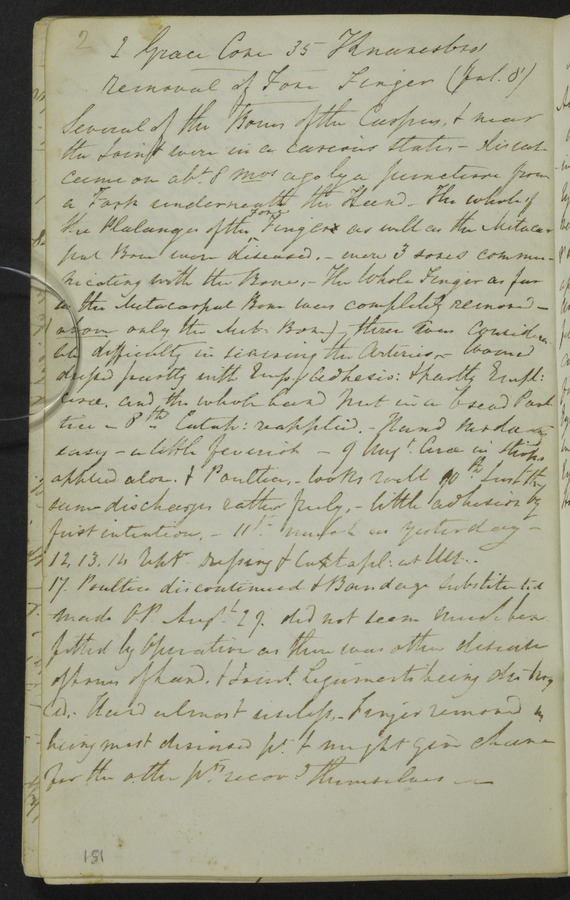 2
2 Grace Cove 35 Knaresbro'
Removal of Fore Finger (Jul. 8)
Several of the Bones of the Carpus, & near
the Joint were in a carious state - Disease
came on abt. 8 mos ago by a puncture from
a Fork underneath the Hand - The whole of
the Phalanges of the Fore Finger as well as the Metacar-
pal Bone were diseased, - were 3 sores commu-
nicating with the Bones, - The whole Finger as far
as the Metacarpal Bone was completely removed -
only the Met: Bone, there was considera-
ble difficulty in securing the Arteries, - Wound
dressed partly with Emp: Adhesiv: & partly Empl:
and the whole hand put in a bread Poul-
tice - 8th Catap: reapplied. - Hand
easy - a little feverish - 9 Ung. Cerae in Strips
applied also. & Poultice, - looks well 10th Just the
same discharges rather freely, - little adhesion by
first intention, - 11th much as yesterday -
12, 13, 14 Rept. dressing & Catapl: ut
17. Poultice discontinued & Bandage substituted
made OP Augt. 29. did not seem much bene-
fitted by Operation as there was other disease
of bones of hand, & Joint Ligaments being destroy-
ed, - Hand almost useless, - Finger removed as
being most diseased pt. & might give chance
for the other pts. recovg. themselves
151